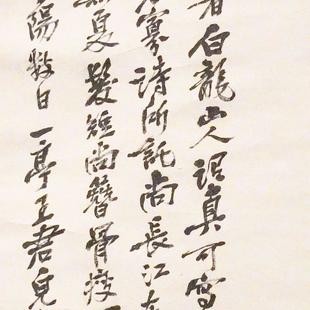 者白龍山人詔真可寫
寥詩所託尚長江
夏髮短尚簪骨瘦
陽數日一亭王君見